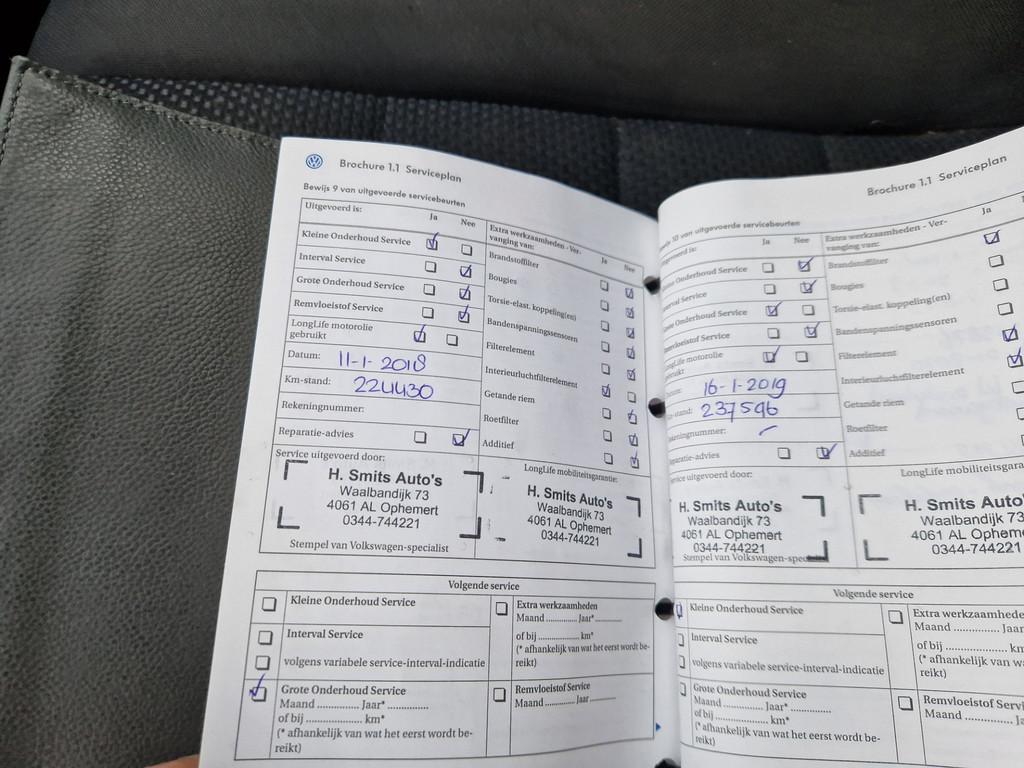 Brochure 1.1 Serviceplan
Bewijs 9 van uitgevoerde servicebeurten
Uitgevoerd is:
Ja Nee
Kleine Onderhoud Service
Interval Service
Grote Onderhoud Service
Remvloeistof Service
LongLife motorolie
gebruikt
Datum: 11-1-2018
Km-stand: 224430
Rekeningnummer:
Reparatie-advies
Extra werkzaamheden - Ver-
vanging van:
Ja Nee
Brandstoffilter
Bougies
Torsie-elast. koppeling(en)
Bandenspanningssensoren
Filterelement
Interieurluchtfilterelement
Getande riem
Roetfilter
Additief
Service uitgevoerd door:
H. Smits Auto's
Waalbandijk 73
4061 AL Ophemert
0344-744221
Stempel van Volkswagen-specialist
LongLife mobiliteitsgarantie:
H. Smits Auto's
Waalbandijk 73
4061 AL Ophemert
0344-744221
Volgende service
Kleine Onderhoud Service
Interval Service
volgens variabele service-interval-indicatie
Grote Onderhoud Service
Maand .............. Jaar* ..............
of bij .................... km*
(* afhankelijk van wat het eerst wordt be-
reikt)
Extra werkzaamheden
Maand ............ Jaar* ..........
of bij ................ km*
(* afhankelijk van wat het eerst wordt be-
reikt)
Remvloeistof Service
Maand ............ Jaar ..........
Brochure 1.1 Serviceplan
10 van uitgevoerde servicebeurten
Ja Nee
Onderhoud Service
Service
Onderhoud Service
Service
LongLife motorolie
16-1-2019
237596
Reparatie-advies
Extra werkzaamheden - Ver-
vanging van:
Ja
Brandstoffilter
Bougies
Torsie-elast. koppeling(en)
Bandenspanningssensoren
Filterelement
Interieurluchtfilterelement
Getande riem
Roetfilter
Additief
uitgevoerd door:
H. Smits Auto's
Waalbandijk 73
4061 AL Ophemert
0344-744221
Stempel van
LongLife
H. Smits
Waalbandijk 73
4061 AL
0344-744221
Volgende service
Kleine Onderhoud Service
Interval Service
volgens variabele service-interval-indicatie
Grote Onderhoud Service
Maand .............. Jaar* ..............
of bij .................... km*
(* afhankelijk van wat het eerst wordt be-
reikt)
Extra
Maand ............ Jaar
of bij ................ km
(* afhankelijk van
reikt)
Remvloeistof
Maand ............